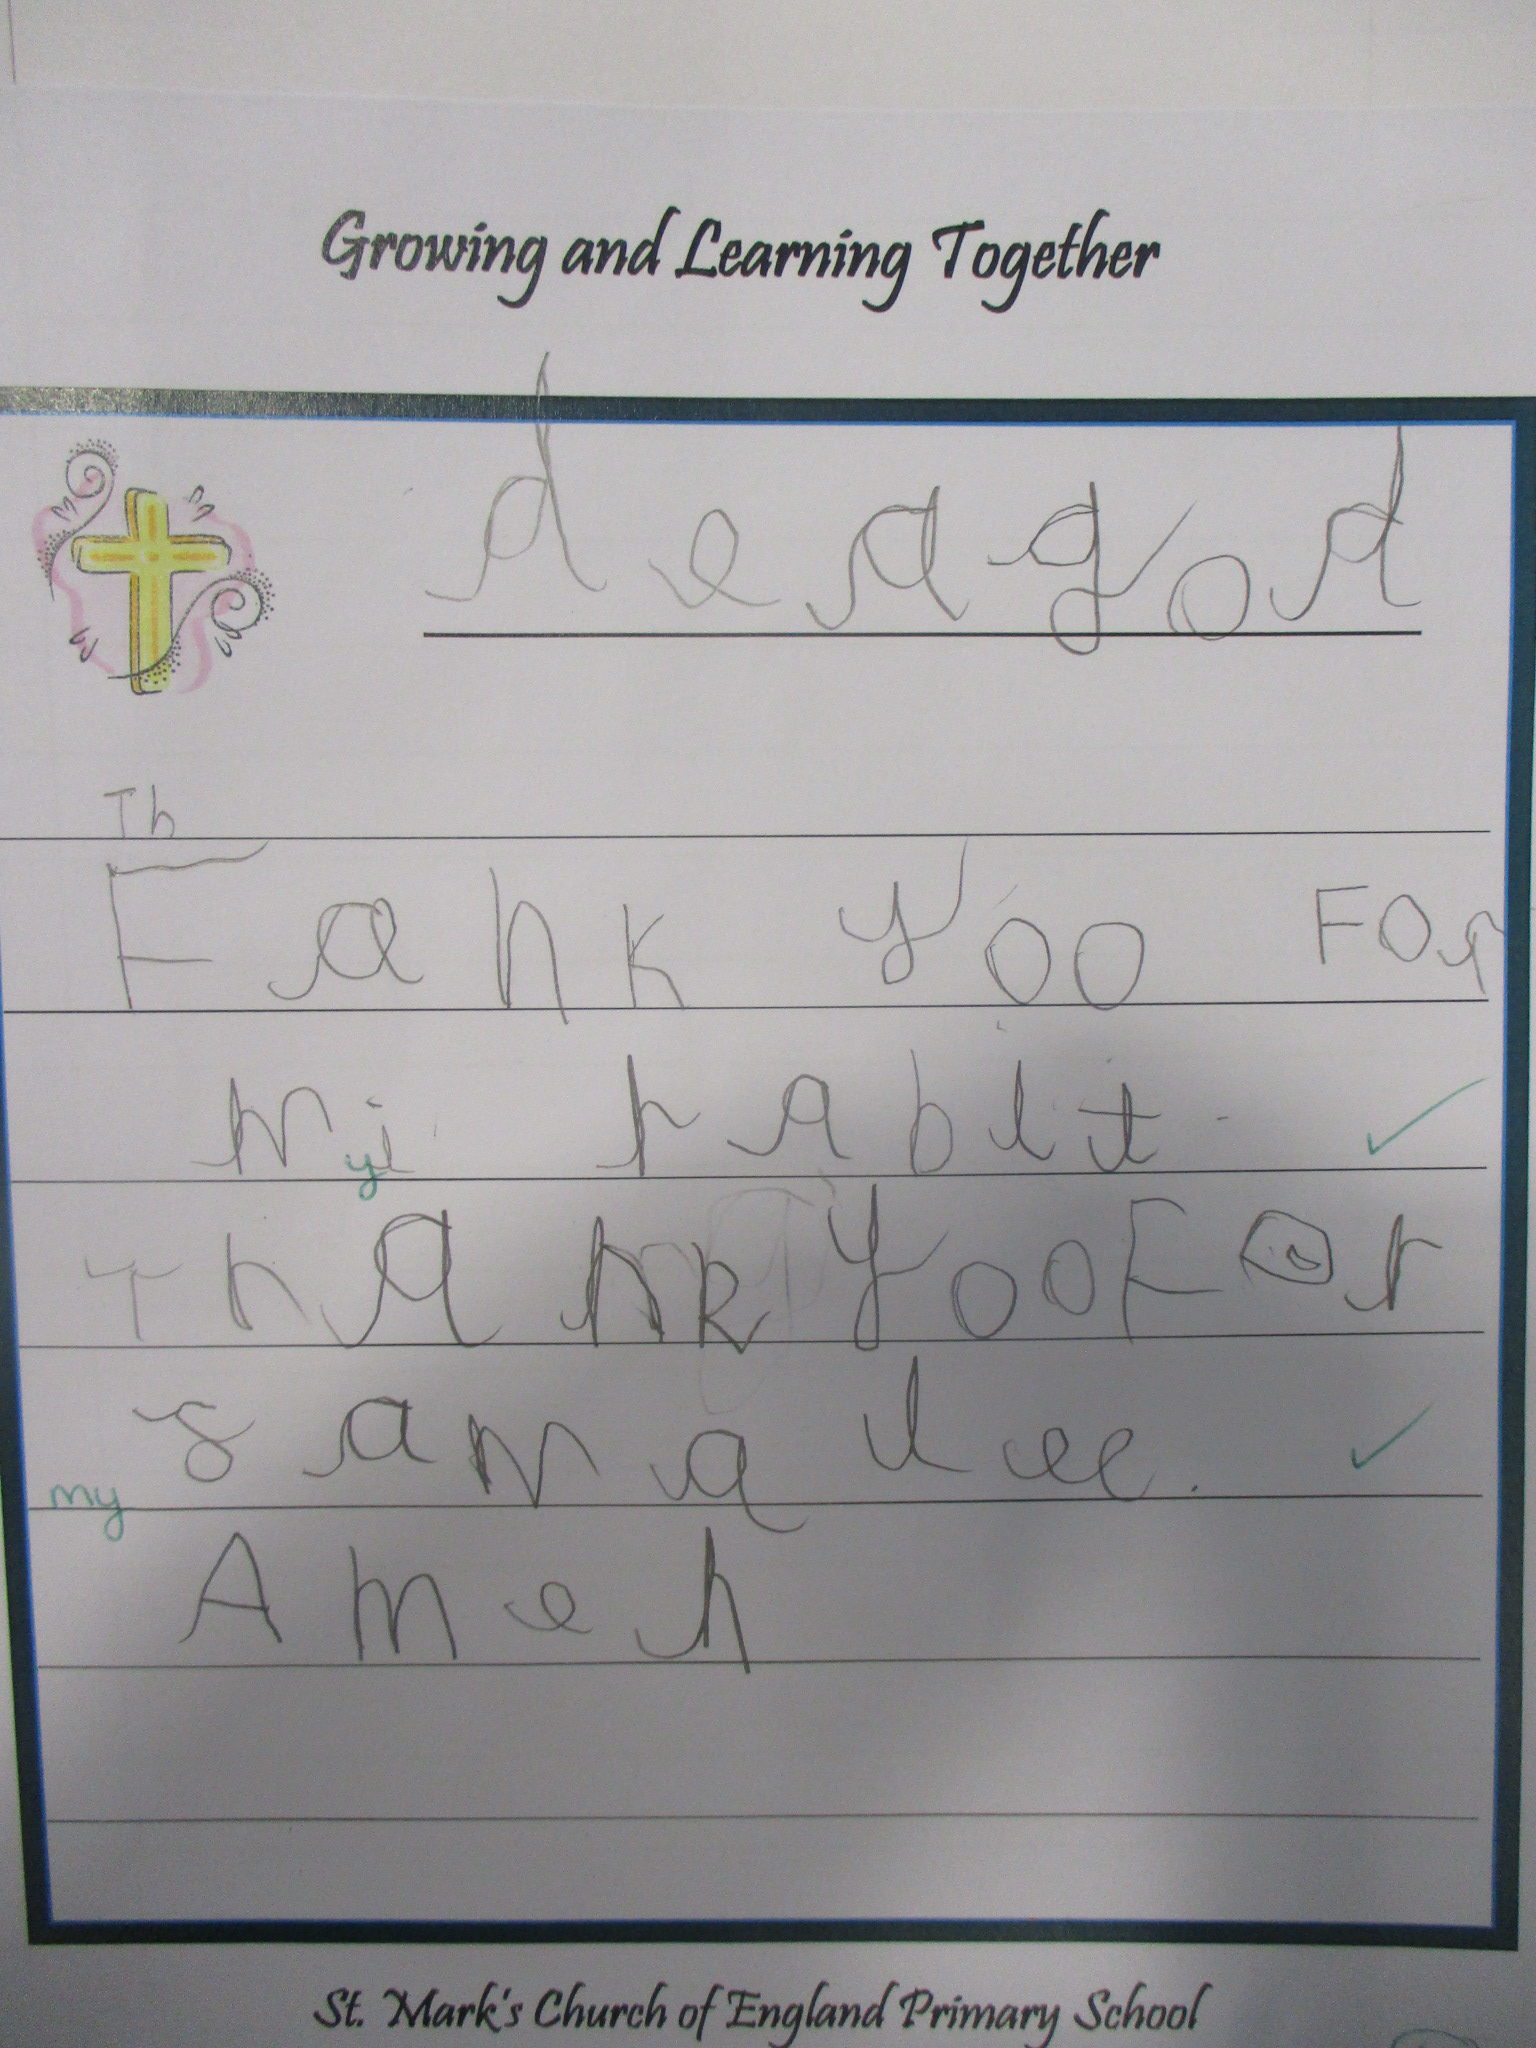 Growing and Learning Together
dea god
Th
Fank yoo For
mi y rabit
Thank yoo For
samalee.
my
Amen
St. Mark's Church of England Primary School